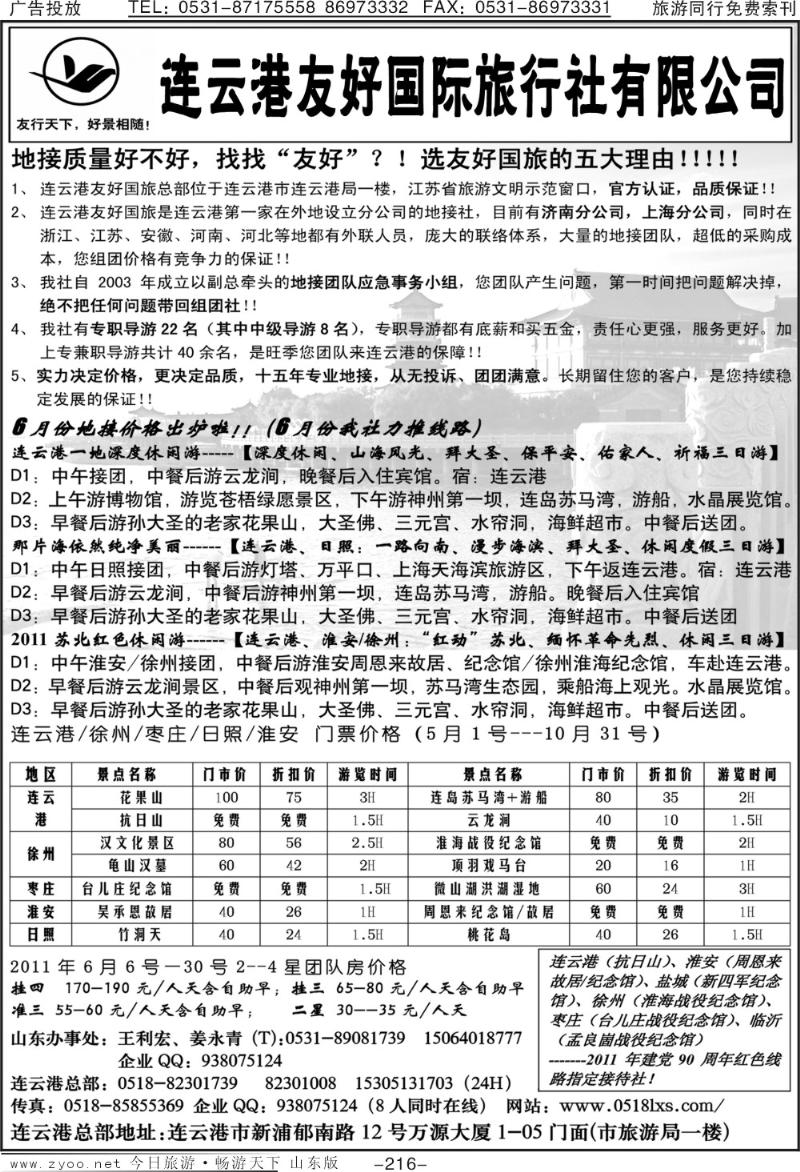 广告投放 TEL：0531-87175558 86973332 FAX：0531-86973331 旅游同行免费索刊
连云港友好国际旅行社有限公司
友行天下，好景相随！
地接质量好不好，找找“友好”？！选友好国旅的五大理由！！！！！
1、 连云港友好国旅总部位于连云港市连云港局一楼，江苏省旅游文明示范窗口，官方认证，品质保证！！
2、 连云港友好国旅是连云港第一家在外地设立分公司的地接社，目前有济南分公司，上海分公司，同时在
浙江、江苏、安徽、河南、河北等地都有外联人员，庞大的联络体系，大量的地接团队，超低的采购成
本，您组团价格有竞争力的保证！！
3、 我社自 2003 年成立以副总牵头的地接团队应急事务小组，您团队产生问题，第一时间把问题解决掉，
绝不把任何问题带回组团社！！
4、 我社有专职导游 22 名（其中中级导游 8 名），专职导游都有底薪和买五金，责任心更强，服务更好。加
上专兼职导游共计 40 余名，是旺季您团队来连云港的保障！！
5、 实力决定价格，更决定品质，十五年专业地接，从无投诉、团团满意。长期留住您的客户，是您持续稳
定发展的保证！！
6 月份地接价格出炉啦！！（6 月份我社力推线路）
连云港一地深度休闲游-----【深度休闲、山海风光、拜大圣、保平安、佑家人、祈福三日游】
D1：中午接团，中餐后游云龙涧，晚餐后入住宾馆。宿：连云港
D2：上午游博物馆，游览苍梧绿愿景区，下午游神州第一坝，连岛苏马湾，游船，水晶展览馆。
D3：早餐后游孙大圣的老家花果山，大圣佛、三元宫、水帘洞，海鲜超市。中餐后送团。
那片海依然纯净美丽------【连云港、日照：一路向南、漫步海滨、拜大圣、休闲度假三日游】
D1：中午日照接团，中餐后游灯塔、万平口、上海天海滨旅游区，下午返连云港。宿：连云港
D2：早餐后游云龙涧，中餐后游神州第一坝，连岛苏马湾，游船。晚餐后入住宾馆
D3：早餐后游孙大圣的老家花果山，大圣佛、三元宫、水帘洞，海鲜超市。中餐后送团
2011 苏北红色休闲游------【连云港、淮安/徐州：“红动”苏北、缅怀革命先烈、休闲三日游】
D1：中午淮安/徐州接团，中餐后游淮安周恩来故居、纪念馆/徐州淮海纪念馆，车赴连云港。
D2：早餐后游云龙涧景区，中餐后观神州第一坝，苏马湾生态园，乘船海上观光。水晶展览馆。
D3：早餐后游孙大圣的老家花果山，大圣佛、三元宫、水帘洞，海鲜超市。中餐后送团。
连云港/徐州/枣庄/日照/淮安 门票价格（5 月 1 号---10 月 31 号）
地区 景点名称 门市价 折扣价 游览时间 景点名称 门市价 折扣价 游览时间
连云港 花果山 100 75 3H 连岛苏马湾+游船 80 35 2H
抗日山 免费 免费 1.5H 云龙涧 40 10 1.5H
徐州 汉文化景区 80 56 2.5H 淮海战役纪念馆 免费 免费 2H
龟山汉墓 60 42 2H 项羽戏马台 20 16 1H
枣庄 台儿庄纪念馆 免费 免费 1.5H 微山湖洪湖湿地 60 24 3H
淮安 吴承恩故居 40 26 1H 周恩来纪念馆/故居 免费 免费 1H
日照 竹洞天 40 24 1.5H 桃花岛 40 26 1.5H
2011 年 6 月 6 号—30 号 2--4 星团队房价格
挂四 170-190 元/人天含自助早；挂三 65-80 元/人天含自助早
准三 55-60 元/人天含自助早； 二星 30--35 元/人天
连云港（抗日山）、淮安（周恩来
故居/纪念馆）、盐城（新四军纪念
馆）、徐州（淮海战役纪念馆）、
枣庄（台儿庄战役纪念馆）、临沂
（孟良崮战役纪念馆）
-------2011 年建党 90 周年红色线
路指定接待社！
山东办事处：王利宏、姜永青（T）：0531-89081739 15064018777
企业 QQ：938075124
连云港总部：0518-82301739 82301008 15305131703（24H）
传真：0518-85855369 企业 QQ：938075124（8 人同时在线） 网站：www.0518lxs.com/
连云港总部地址：连云港市新浦郁南路 12 号万源大厦 1—05 门面(市旅游局一楼)
www.zyoo.net 今日旅游·畅游天下 山东版 -216-